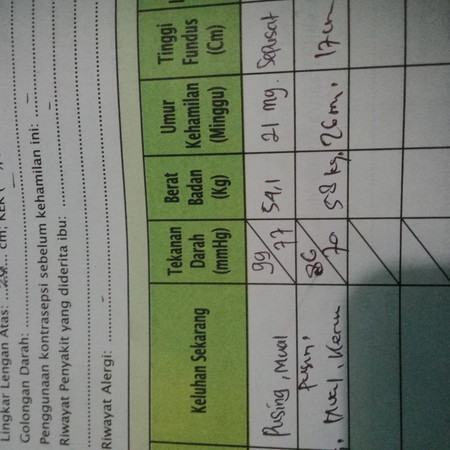 Lingkar Lengan Atas: ... cm; KEK (
Golongan Darah:
Penggunaan kontrasepsi sebelum kehamilan ini:
Riwayat Penyakit yang diderita ibu:
Riwayat Alergi:
Keluhan Sekarang
Tekanan Darah (mmHg)
Berat Badan (Kg)
Umur Kehamilan (Minggu)
Tinggi Fundus (Cm)
Pusing, Mual
99/77
54,1
21 mg.
Sepusat
Pusin,
Mual,
86/70
58 kg,
26 m,
17 cm